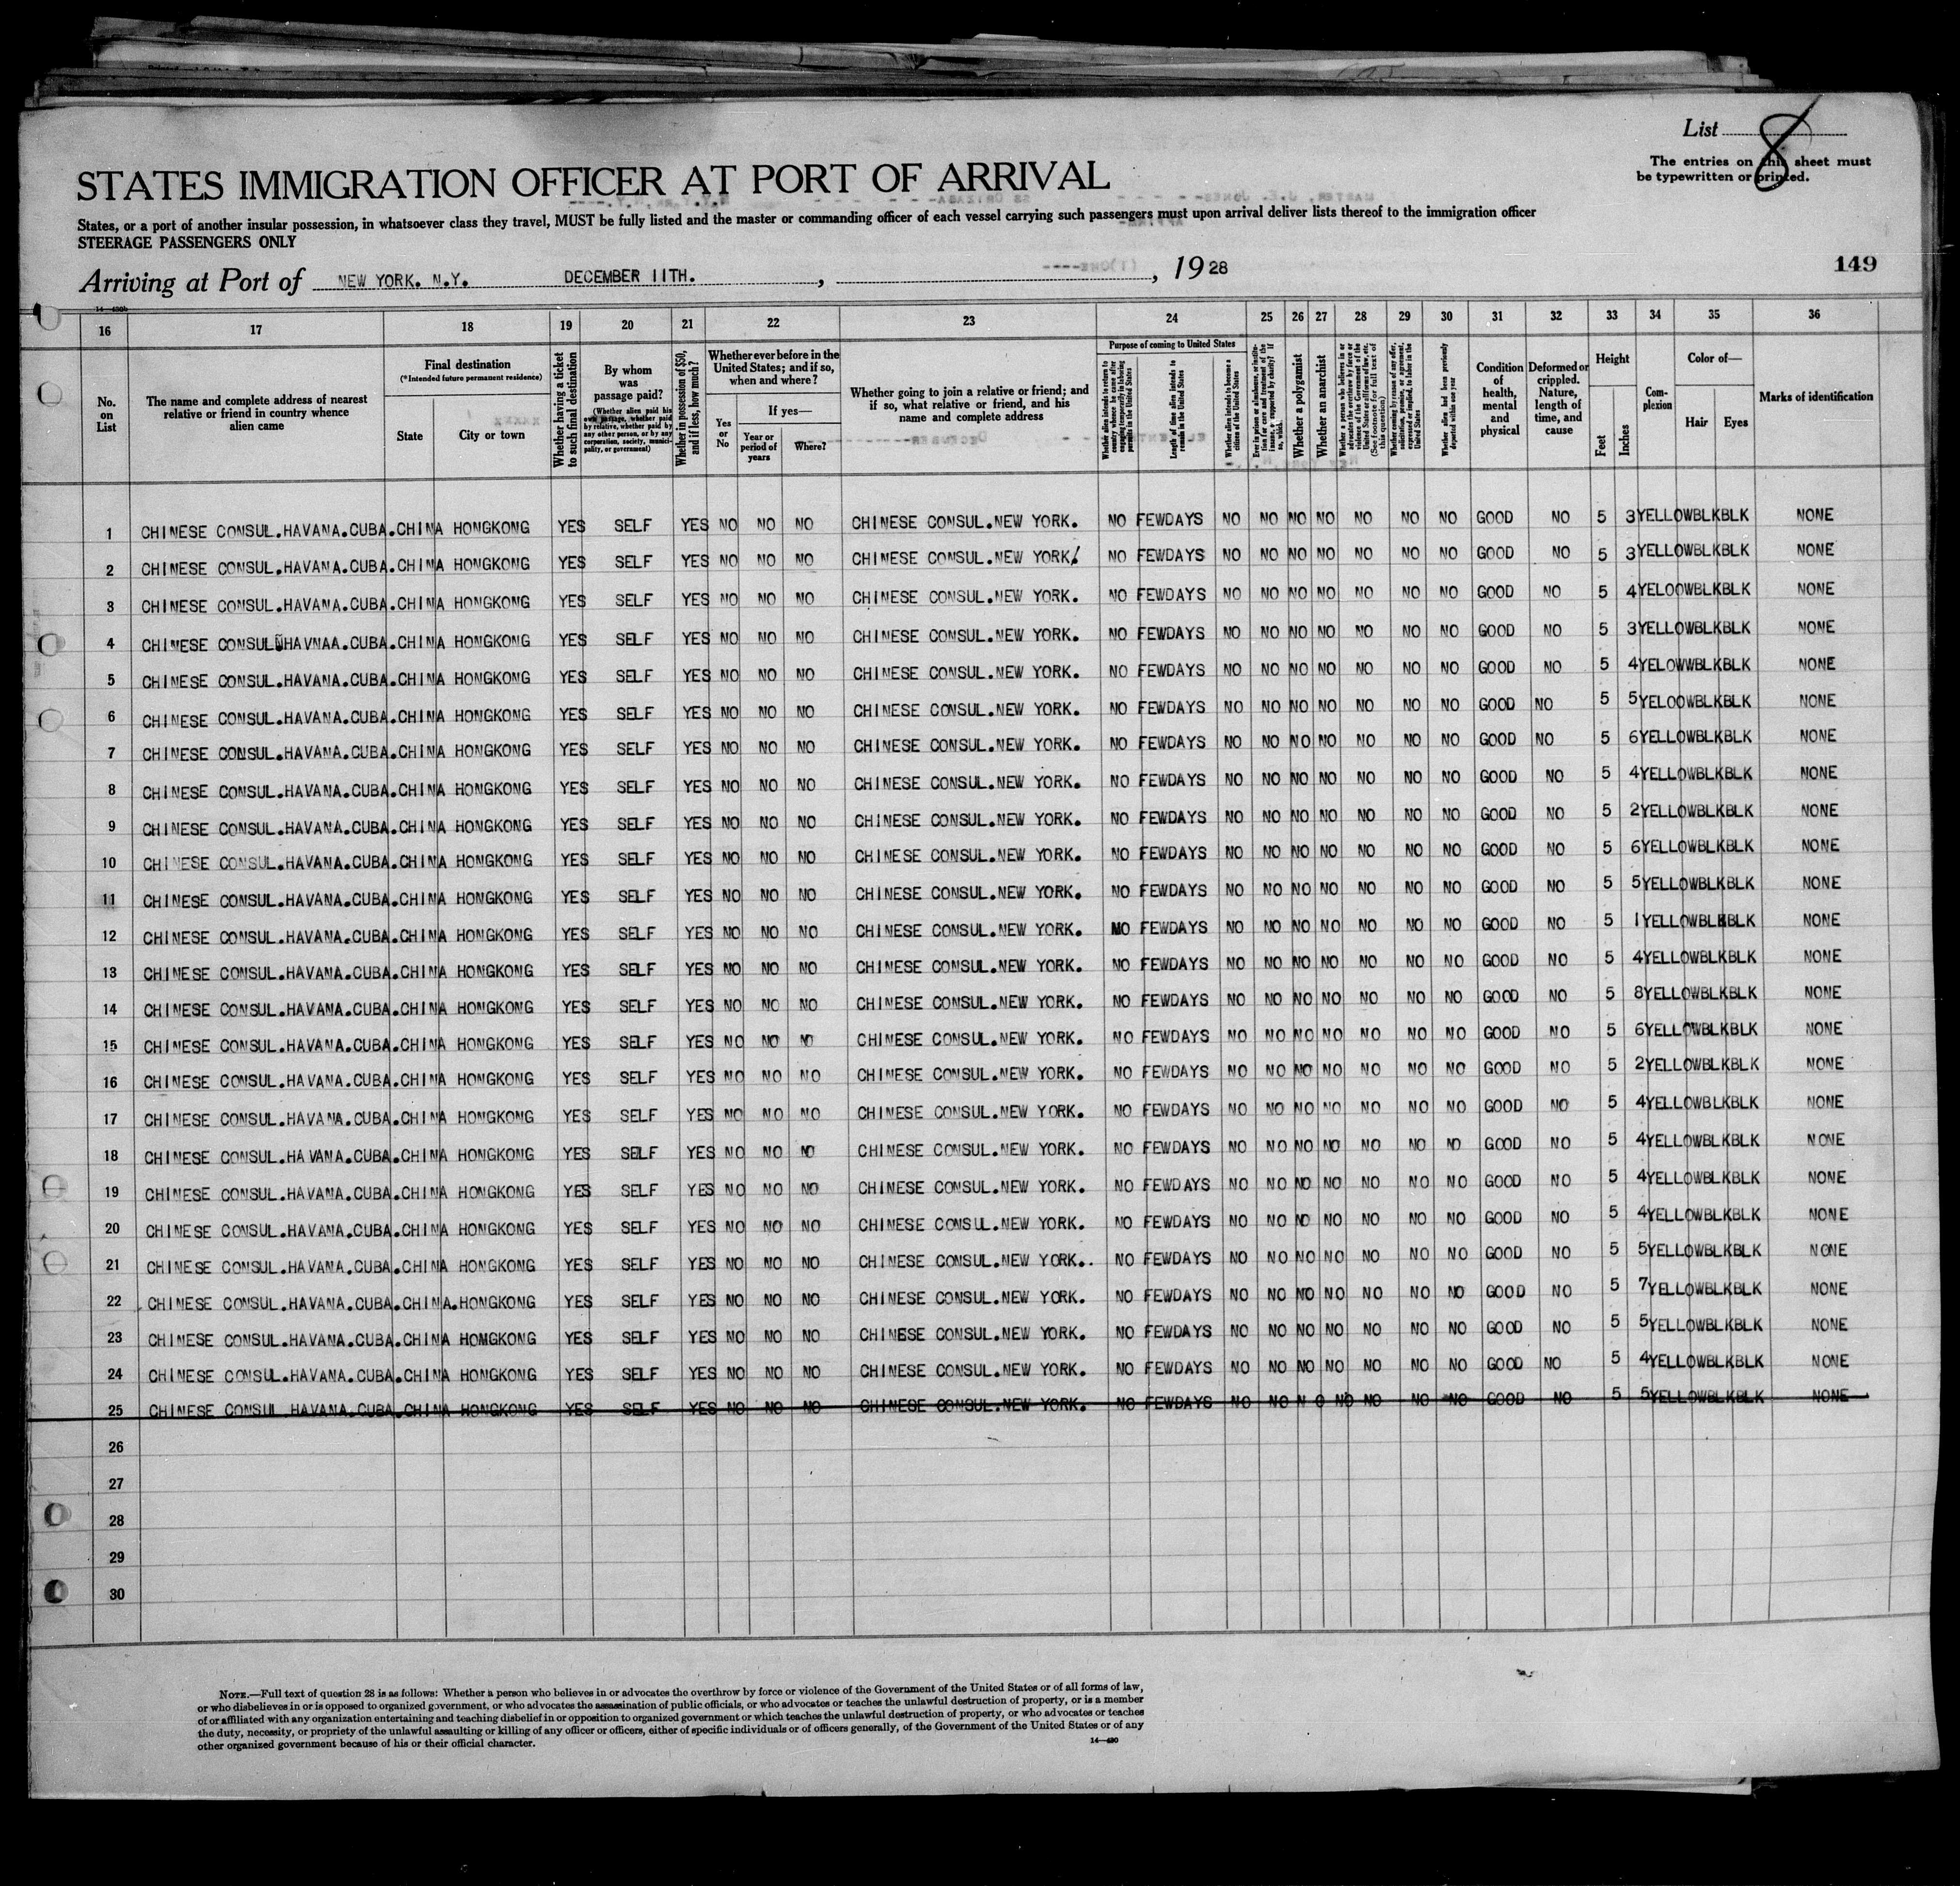 List 8
The entries on this sheet must
be typewritten or printed.
STATES IMMIGRATION OFFICER AT PORT OF ARRIVAL
States, or a port of another insular possession, in whatsoever class they travel, MUST be fully listed and the master or commanding officer of each vessel carrying such passengers must upon arrival deliver lists thereof to the immigration officer
STEERAGE PASSENGERS ONLY
Arriving at Port of NEW YORK. N.Y. DECEMBER 11TH. , , 1928
149
16 17 18 19 20 21 22 23 24 25 26 27 28 29 30 31 32 33 34 35 36
No. on List
The name and complete address of nearest relative or friend in country whence alien came
Final destination
(*Intended future permanent residence)
State
City or town
Whether having a ticket to such final destination
By whom was passage paid?
(Whether alien paid his own passage, whether paid by relative, whether paid by any other person, or by any corporation, society, municipality, or government)
Whether in possession of $50, and if less, how much?
Whether ever before in the United States; and if so, when and where?
Yes or No
If yes—
Year or period of years
Where?
Whether going to join a relative or friend; and if so, what relative or friend, and his name and complete address
Purpose of coming to United States
Whether alien intends to return to country whence he came after engaging temporarily in laboring pursuits in the United States
Length of time alien intends to remain in the United States
Whether alien intends to become a citizen of the United States
Whether a polygamist
Whether an anarchist
Whether alien had been previously deported within one year
Condition of health, mental and physical
Deformed or crippled. Nature, length of time, and cause
Height
Feet
Inches
Complexion
Color of—
Hair
Eyes
Marks of identification
1 CHINESE CONSUL.HAVANA.CUBA.CHINA HONGKONG YES SELF YES NO NO NO CHINESE CONSUL.NEW YORK. NO FEWDAYS NO NO NO NO NO NO NO GOOD NO 5 3YELLOWBLKBLK NONE
2 CHINESE CONSUL.HAVANA.CUBA.CHINA HONGKONG YES SELF YES NO NO NO CHINESE CONSUL.NEW YORK. NO FEWDAYS NO NO NO NO NO NO NO GOOD NO 5 3YELLOWBLKBLK NONE
3 CHINESE CONSUL.HAVANA.CUBA.CHINA HONGKONG YES SELF YES NO NO NO CHINESE CONSUL.NEW YORK. NO FEWDAYS NO NO NO NO NO NO NO GOOD NO 5 4YELOOWBLKBLK NONE
4 CHINESE CONSUL.HAVNAA.CUBA.CHINA HONGKONG YES SELF YES NO NO NO CHINESE CONSUL.NEW YORK. NO FEWDAYS NO NO NO NO NO NO NO GOOD NO 5 3YELLOWBLKBLK NONE
5 CHINESE CONSUL.HAVANA.CUBA.CHINA HONGKONG YES SELF YES NO NO NO CHINESE CONSUL.NEW YORK. NO FEWDAYS NO NO NO NO NO NO NO GOOD NO 5 4YELOWWBLKBLK NONE
6 CHINESE CONSUL.HAVANA.CUBA.CHINA HONGKONG YES SELF YES NO NO NO CHINESE CONSUL.NEW YORK. NO FEWDAYS NO NO NO NO NO NO NO GOOD NO 5 5YELOOWBLKBLK NONE
7 CHINESE CONSUL.HAVANA.CUBA.CHINA HONGKONG YES SELF YES NO NO NO CHINESE CONSUL.NEW YORK. NO FEWDAYS NO NO NO NO NO NO NO GOOD NO 5 6YELLOWBLKBLK NONE
8 CHINESE CONSUL.HAVANA.CUBA.CHINA HONGKONG YES SELF YES NO NO NO CHINESE CONSUL.NEW YORK. NO FEWDAYS NO NO NO NO NO NO NO GOOD NO 5 4YELLOWBLKBLK NONE
9 CHINESE CONSUL.HAVANA.CUBA.CHINA HONGKONG YES SELF YES NO NO NO CHINESE CONSUL.NEW YORK. NO FEWDAYS NO NO NO NO NO NO NO GOOD NO 5 2YELLOWBLKBLK NONE
10 CHINESE CONSUL.HAVANA.CUBA.CHINA HONGKONG YES SELF YES NO NO NO CHINESE CONSUL.NEW YORK. NO FEWDAYS NO NO NO NO NO NO NO GOOD NO 5 6YELLOWBLKBLK NONE
11 CHINESE CONSUL.HAVANA.CUBA.CHINA HONGKONG YES SELF YES NO NO NO CHINESE CONSUL.NEW YORK. NO FEWDAYS NO NO NO NO NO NO NO GOOD NO 5 5YELLOWBLKBLK NONE
12 CHINESE CONSUL.HAVANA.CUBA.CHINA HONGKONG YES SELF YES NO NO NO CHINESE CONSUL.NEW YORK. NO FEWDAYS NO NO NO NO NO NO NO GOOD NO 5 1YELLOWBLKBLK NONE
13 CHINESE CONSUL.HAVANA.CUBA.CHINA HONGKONG YES SELF YES NO NO NO CHINESE CONSUL.NEW YORK. NO FEWDAYS NO NO NO NO NO NO NO GOOD NO 5 4YELLOWBLKBLK NONE
14 CHINESE CONSUL.HAVANA.CUBA.CHINA HONGKONG YES SELF YES NO NO NO CHINESE CONSUL.NEW YORK. NO FEWDAYS NO NO NO NO NO NO NO GOOD NO 5 8YELLOWBLKBLK NONE
15 CHINESE CONSUL.HAVANA.CUBA.CHINA HONGKONG YES SELF YES NO NO NO CHINESE CONSUL.NEW YORK. NO FEWDAYS NO NO NO NO NO NO NO GOOD NO 5 6YELLOWBLKBLK NONE
16 CHINESE CONSUL.HAVANA.CUBA.CHINA HONGKONG YES SELF YES NO NO NO CHINESE CONSUL.NEW YORK. NO FEWDAYS NO NO NO NO NO NO NO GOOD NO 5 2YELLOWBLKBLK NONE
17 CHINESE CONSUL.HAVANA.CUBA.CHINA HONGKONG YES SELF YES NO NO NO CHINESE CONSUL.NEW YORK. NO FEWDAYS NO NO NO NO NO NO NO GOOD NO 5 4YELLOWBLKBLK NONE
18 CHINESE CONSUL.HAVANA.CUBA.CHINA HONGKONG YES SELF YES NO NO NO CHINESE CONSUL.NEW YORK. NO FEWDAYS NO NO NO NO NO NO NO GOOD NO 5 4YELLOWBLKBLK NONE
19 CHINESE CONSUL.HAVANA.CUBA.CHINA HONGKONG YES SELF YES NO NO NO CHINESE CONSUL.NEW YORK. NO FEWDAYS NO NO NO NO NO NO NO GOOD NO 5 4YELLOWBLKBLK NONE
20 CHINESE CONSUL.HAVANA.CUBA.CHINA HONGKONG YES SELF YES NO NO NO CHINESE CONSUL.NEW YORK. NO FEWDAYS NO NO NO NO NO NO NO GOOD NO 5 4YELLOWBLKBLK NONE
21 CHINESE CONSUL.HAVANA.CUBA.CHINA HONGKONG YES SELF YES NO NO NO CHINESE CONSUL.NEW YORK.. NO FEWDAYS NO NO NO NO NO NO NO GOOD NO 5 5YELLOWBLKBLK NONE
22 CHINESE CONSUL.HAVANA.CUBA.CHINA.HONGKONG YES SELF YES NO NO NO CHINESE CONSUL.NEW YORK. NO FEWDAYS NO NO NO NO NO NO NO GOOD NO 5 7YELLOWBLKBLK NONE
23 CHINESE CONSUL.HAVANA.CUBA.CHINA HOMGKONG YES SELF YES NO NO NO CHINESE CONSUL.NEW YORK. NO FEWDAYS NO NO NO NO NO NO NO GOOD NO 5 5YELLOWBLKBLK NONE
24 CHINESE CONSUL.HAVANA.CUBA.CHINA HONGKONG YES SELF YES NO NO NO CHINESE CONSUL.NEW YORK. NO FEWDAYS NO NO NO NO NO NO NO GOOD NO 5 4YELLOWBLKBLK NONE
25 CHINESE CONSUL HAVANA.CUBA.CHINA HONGKONG YES SELF YES NO NO NO CHINESE CONSUL.NEW YORK. NO FEWDAYS NO NO NO NO NO NO NO GOOD NO 5 5YELLOWBLKBLK NONE
26
27
28
29
30
NOTE.—Full text of question 28 is as follows: Whether a person who believes in or advocates the overthrow by force or violence of the Government of the United States or of all forms of law,
or who disbelieves in or is opposed to organized government, or who advocates the assassination of public officials, or who advocates or teaches the unlawful destruction of property, or is a member
of or affiliated with any organization entertaining and teaching disbelief in or opposition to organized government or which teaches the unlawful destruction of property, or who advocates or teaches
the duty, necessity, or propriety of the unlawful assaulting or killing of any officer or officers, either of specific individuals or of officers generally, of the Government of the United States or of any
other organized government because of his or their official character.
14—430